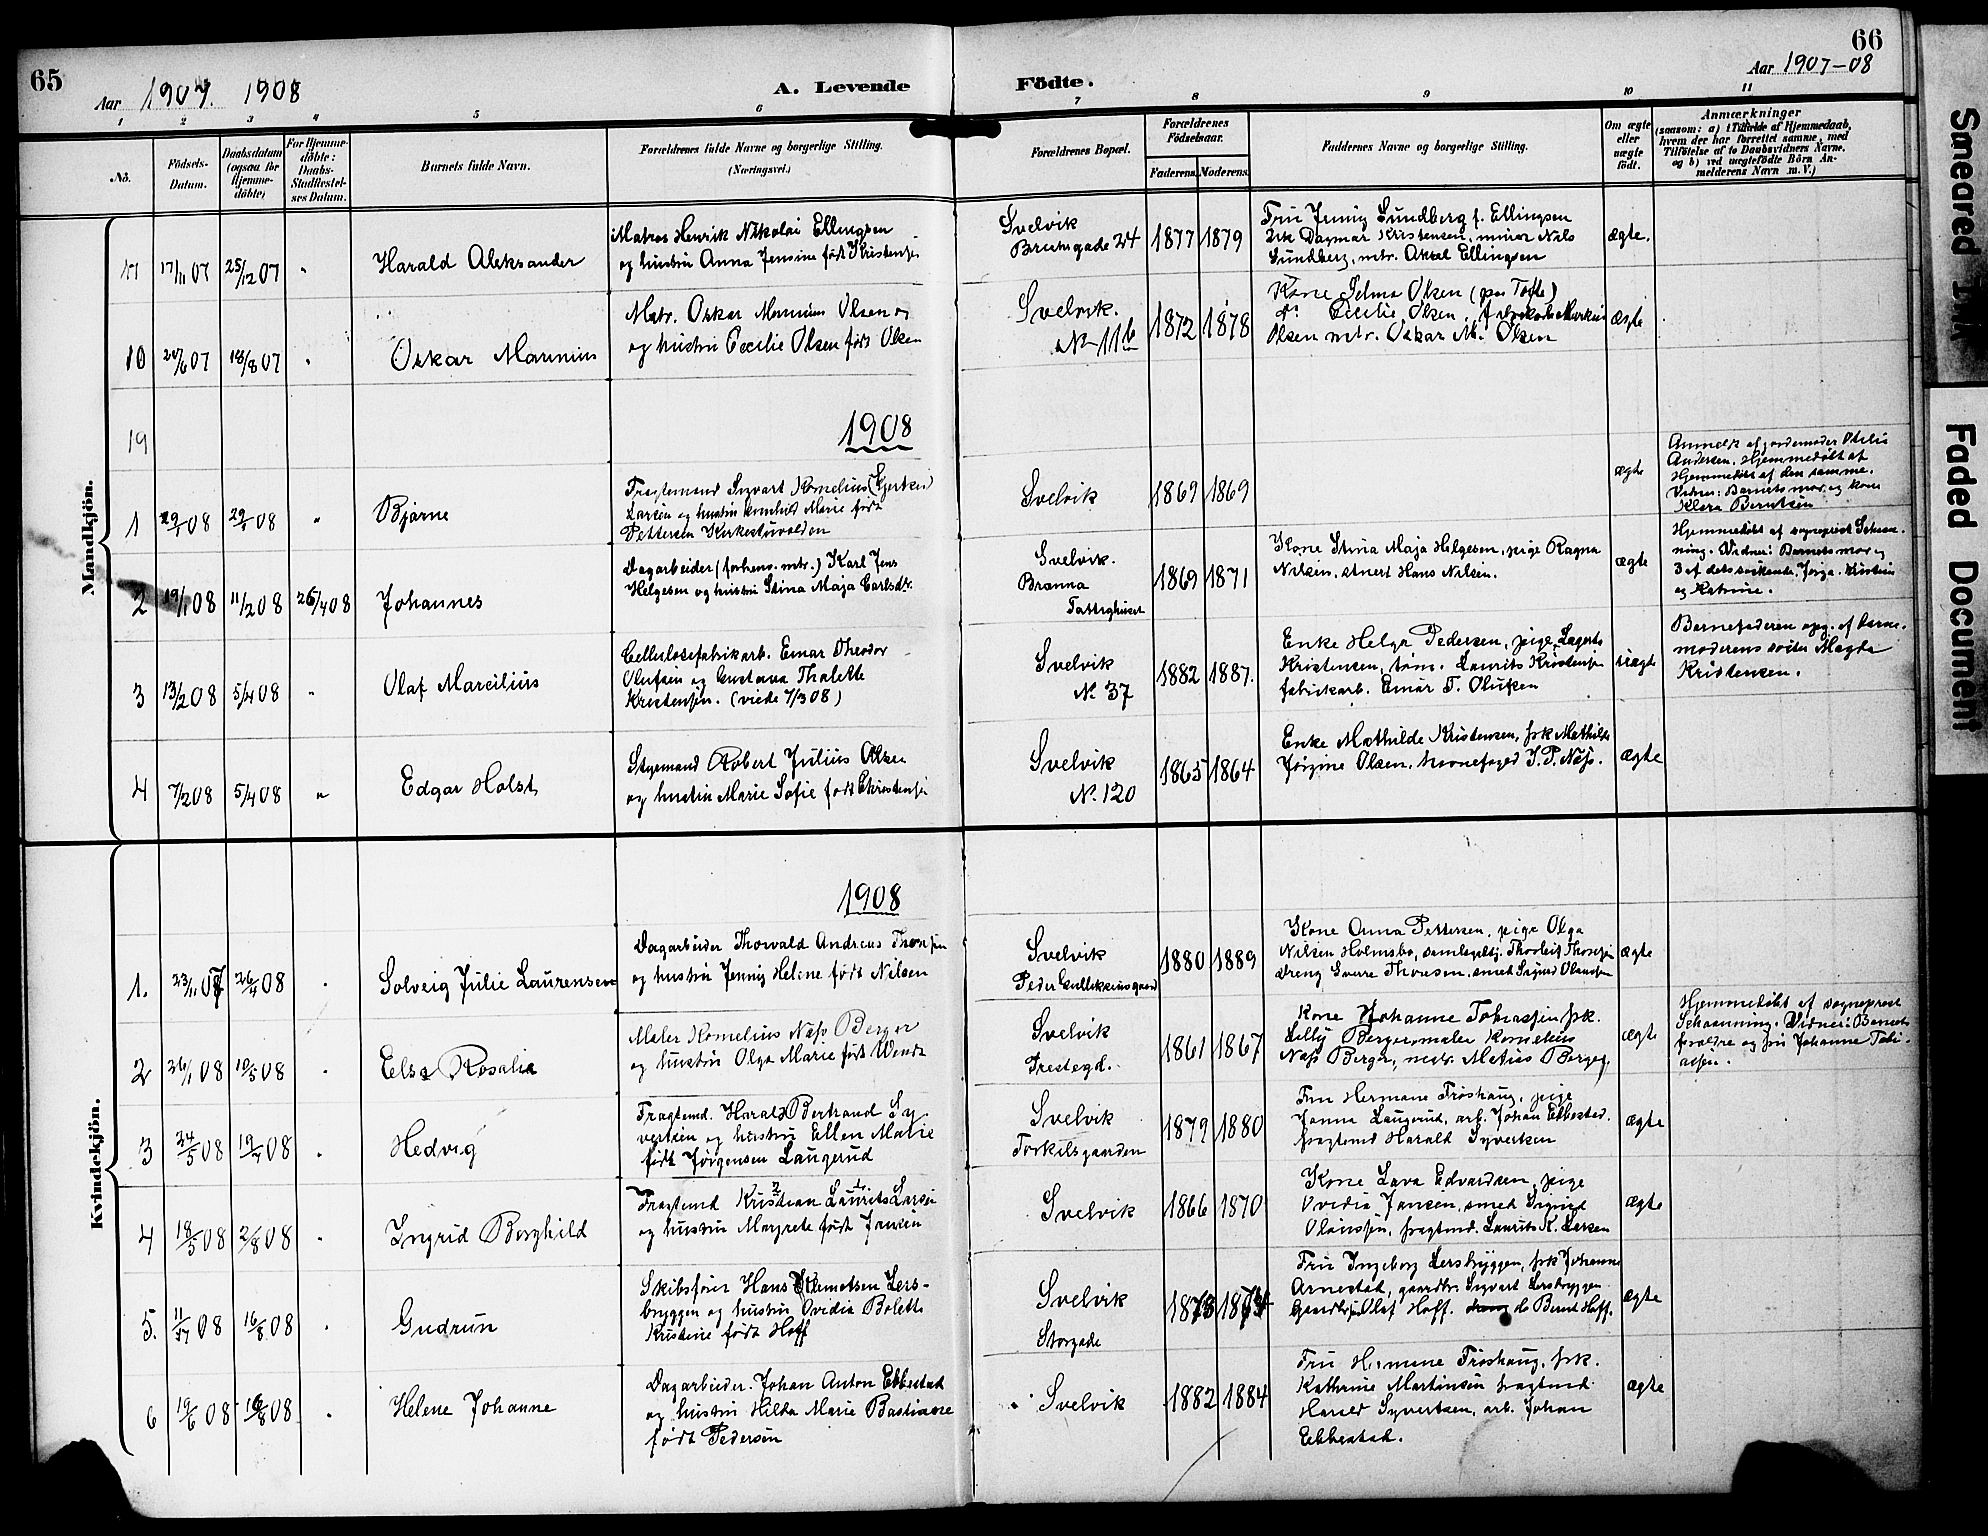 65
Aar 1907. 1908
A. Levende
Födte.
66
Aar 1907-08
1 2 3 4 5 6 7 8 9 10 11
No.
Födsels-
Datum.
Daabsdatum
(ogsaa for
Hjemme-
döbte)
For Hjemme-
döbte:
Daabs-
Stadfæstel-
ses Datum.
Barnets fulde Navn.
Forældrenes fulde Navne og borgerlige Stilling.
(Næringsvei.)
Forældrenes Bopæl.
Forældrenes
Födselsaar.
Faderens. Moderens.
Faddernes Navne og borgerlige Stilling.
Om ægte
eller
uægte
födt.
Anmærkninger
(saasom: a) i Tilfælde af Hjemmedaab,
hvem der har forrettet samme, med
Tilföielse af to Daabsvidners Navne,
og b) ved uægtefödte Börn An-
melderens Navn m. V.)
Mandkjön.
17/11 07
25/12 07
"
Harald Aleksander
Matros Henrik Nikolai Ellingsen
og hustru Anna Jensine født Kristensen
Svelvik
Brumsgade 24
1877 1879
Fru Jenny Lundberg f. Ellingsen
frk Dagmar Kristensen, minør Nils
Lundberg, mtr. Aksel Ellingsen
ægte.
10
24/6 07
18/8 07
"
Oskar Marinius
Matr. Oskar Marinius Olsen og
og hustru Cecilie Olsen født Olsen
Svelvik.
No 11b
1872 1878
Kone Selma Olsen (paa Tofte)
do Cecilie Olsen, Markus
Olsen mtr. Oskar M. Olsen
ægte
19
1908
1
29/1 08
29/1 08
"
Bjarne
Fragtemand Sigvart Kornelius (Gjertsen)
Larsen og hustru Marie født
Pettersen
Svelvik
1869 1869
ægte
Anmeldt af jordemoder Otelie
Andersen. Hjemmedøbt af
Hjemmedøbt af den samme.
Vidner: Barnets mor og kone
Klara Berntsen
2
19/1 08
11/2 08
26/4 08
Johannes
Dagarbeider (forhenv. mtr.) Karl Jens
Helgesen og hustru Stina Maja Carlsdtr.
Svelvik.
Branna
Fattighuset
1869 1871
Kone Stina Maja Helgesen, pige Ragna
Nilsen, Hans Nilsen.
ægte
Hjemmedøbt af sogneprest Schaan-
ning. Vidner: Barnets mor og
3 af dets søskende, Kristian
og Katrine.
3
13/2 08
5/4 08
"
Olaf Marcilius
Cellulosefabrikarb. Einar Theodor
Olufsen og Gustava Thalette
Kristensen. (viede 7/3 08)
Svelvik
No 37
1882 1887.
Enke Helga Pedersen, pige Lagerta
Kristensen, tøm. Laurits Kristensen
fabrikarb. Einar T. Olufsen
uægte
Barnefaderen opg. af barne-
moderens søster Magda
Kristensen.
4
7/2 08
5/4 08
"
Edgar Holst
Styrmand Robert Julius Olsen
og hustru Marie Sofie født Christensen
Svelvik
No. 120
1865 1864
Enke Mathilde Kristensen, frk Mathilde
Jørgine Olsen, havnefoged J. P. Næss.
ægte
Kvindekjön.
1908
1.
23/11 07
26/4 08
"
Solveig Julie Laurensen
Dagarbeider Thorvald Andreas Thoresen
og hustru Jenny Helene født Nilsen
Svelvik
Peder Gulliksensgaard
1880 1889
Kone Anna Pettersen, pige Olga
Nilsen Holmsbo, Thorleif Thoresen
dreng Sverre Thoresen, smed Sigurd Olaussen
ægte
2
26/1 08
10/5 08
"
Elsa Rosalia
Maler Kornelius Næss Berger
og hustru Olga Marie født Wendt
Svelvik
Prestegd.
1861 1867
Kone Johanne Tobiassen frk.
Lelly Berger, maler Kornelius
Næss Berger, Matius Berger
ægte
Hjemmedøbt af sogneprest
Schaanning. Vidner: Barnets
forældre og fru Johanne Tobi-
assen.
3
24/5 08
19/7 08
"
Hedvig
Fragtemd. Harald Bertrand Sy-
vertsen og hustru Ellen Marie
født Jørgensen Laugerud
Svelvik
Torkilsgaarden
1879 1880
Fru Hermane Frøshaug, pige
Janna Laugerud, arb. Johan Ebbestad.
fragtemd Harald Syvertsen
ægte
4
18/5 08
2/8 08
"
Ingrid Borghild
Fragtemd Kristian Laurits Larsen
og hustru Margrete født Jansen
Svelvik
1866 1870
Kone Lava Edvardsen, pige
Ovedia Jansen, smed Sigurd
Olaussen, fragtemd. Laurits K. Larsen
ægte
5.
11/7 08
16/8 08
"
Gudrun
Skibsfører Hans Klemetsen Lers-
bryggen og hustru Ovidia Bolette
Kristine født Hoff
Svelvik
Storgade
1873 1874
Fru Ingeborg Lersbryggen, frk Johanne
Arnestad, gaardbr Sigvart Lersbryggen
Gaardbr. Olaf Hoff. do Bernt Hoff.
ægte
6
19/6 08
16/8 08
"
Helene Johanne
Dagarbeider. Johan Anton Ebbestad
og hustru Hilda Marie Bastiane
født Pedersen
Svelvik
1882 1884
Fru Hermane Frøshaug, frk.
Kathrine Martinsen fragtemd.
Harald Syvertsen, arb. Johan
Ebbestad.
ægte
Smeared Ink
Faded Document